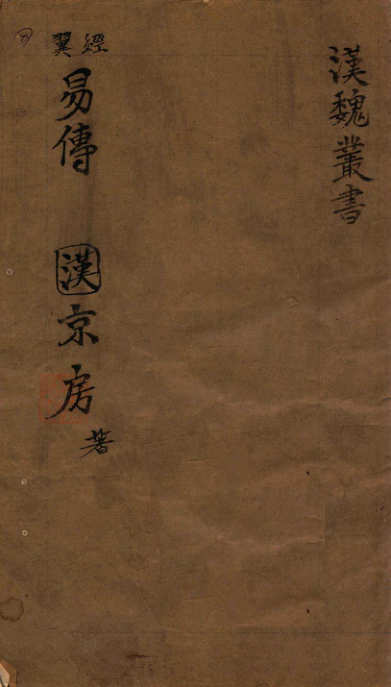 漢魏叢書
經翼
易傳 漢 京房著